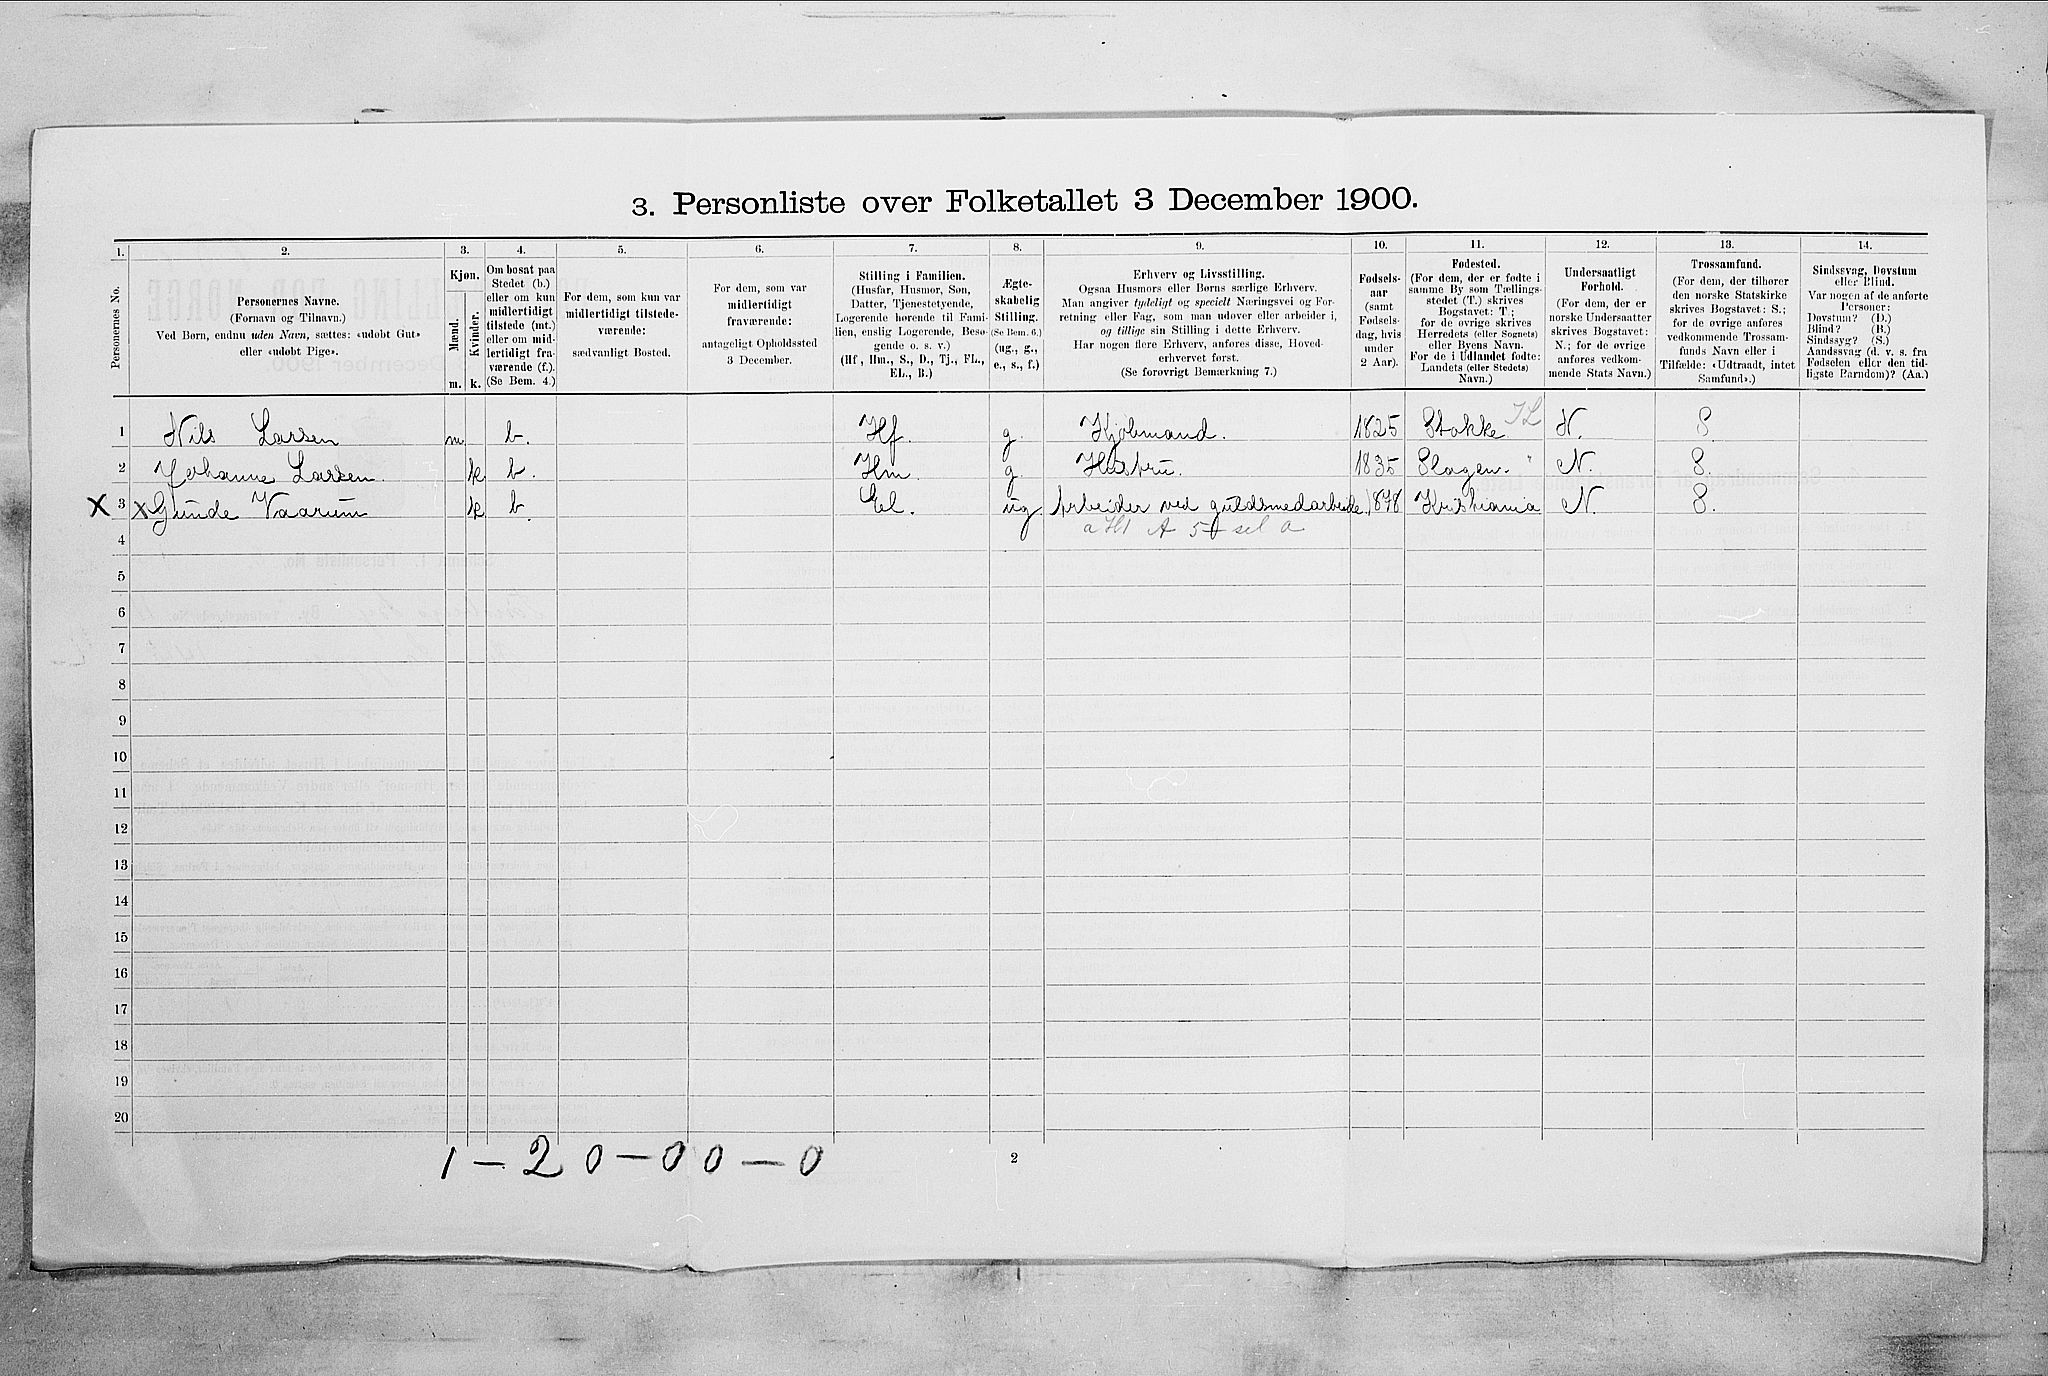 3. Personliste over Folketallet 3 December 1900.
1. 2. 3. 4. 5. 6. 7. 8. 9. 10. 11. 12. 13. 14.
Personernes No.
Personernes Navne.
(Fornavn og Tilnavn.)
Ved Børn, endnu uden Navn, sættes: «udøbt Gut»
eller «udøbt Pige».
Kjøn.
Mænd.
Kvinder.
m. k.
Om bosat paa
Stedet (b.)
eller om kun
midlertidigt
tilstede (mt.)
eller om mid-
lertidigt fra-
værende (f.).
(Se Bem. 4.)
For dem, som kun var
midlertidigt tilstede-
værende:
sædvanligt Bosted.
For dem, som var
midlertidigt
fraværende:
antageligt Opholdssted
3 December.
Stilling i Familien.
(Husfar, Husmor, Søn,
Datter, Tjenestetyende,
Logerende hørende til Fami-
lien, enslig Logerende, Besø-
gende o. s. v.)
(Hf, Hm., S., D., Tj., FL.,
EL., B.)
Ægte-
skabelig
Stilling.
(Se Bem. 6.)
(ug., g.,
e., s., f.)
Erhverv og Livsstilling.
Ogsaa Husmors eller Børns særlige Erhverv.
Man angiver tydeligt og specielt Næringsvei og For-
retning eller Fag, som man udøver eller arbeider i,
og tillige sin Stilling i dette Erhverv.
Har nogen flere Erhverv, anføres disse, Hoved-
erhvervet først.
(Se forøvrigt Bemærkning 7.)
Fødsels-
aar
(samt
Fødsels-
dag, hvis
under
2 Aar).
Fødested.
(For dem, der er fødte i
samme By som Tællings-
stedet (T.) skrives
Bogstavet: T.;
for de øvrige skrives
Herredets (eller Sognets)
eller Byens Navn.
For de i Udlandet fødte:
Landets (eller Stedets)
Navn.)
Undersaatligt
Forhold.
(For dem, der er
norske Undersaatter
skrives Bogstavet:
N.; for de øvrige
anføres vedkom-
mende Stats Navn.)
Trossamfund.
(For dem, der tilhører
den norske Statskirke
skrives Bogstavet: S.;
for de øvrige anføres
vedkommende Trossam-
funds Navn eller i
Tilfælde: «Udtraadt, intet
Samfund».)
Sindssvag, Døvstum
eller Blind.
Var nogen af de anførte
Personer:
Døvstum? (D.)
Blind? (B.)
Sindssyg? (S.)
Aandssvag (d. v. s. fra
Fødselen eller den tid-
ligste Barndom)? (Aa.)
1 Nils Larsen m. b. Hf. g. Kjøbmand. 1825 Stokke N. S.
2 Johanne Larsen. k b. Hm g. Hustru. 1835 Slagen. " N. S.
X 3 X Gunde Vaarum k b. El. ug. Arbeider ved guldsmedarbeide. 1878 Kristiania N. S.
4
5
6
7
8
9
10
11
12
13
14
15
16
17
18
19
20
1 – 2 0 – 0 0 – 0
2